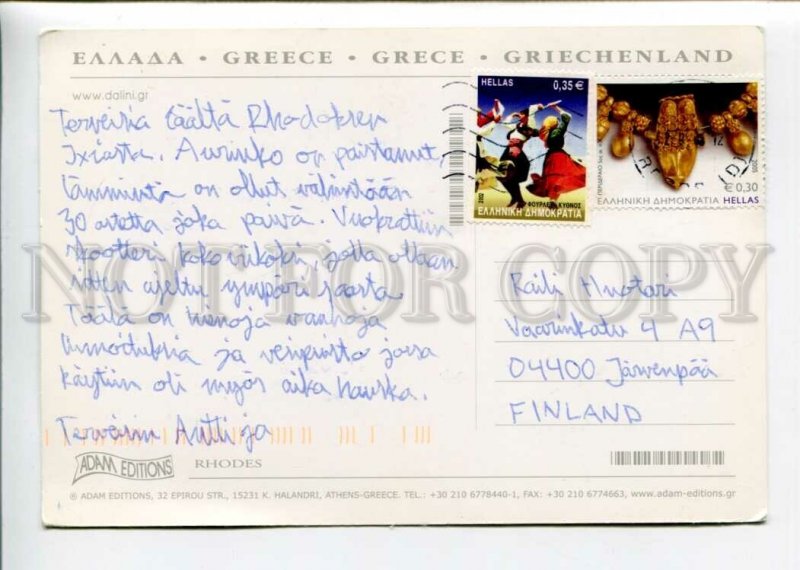 ΕΛΛΑΔΑ • GREECE • GRECE • GRIECHENLAND
www.dalini.gr
HELLAS 0,35 €
ΦΟΥΡΛΕΣ ΚΥΘΝΟΣ
ΕΛΛΗΝΙΚΗ ΔΗΜΟΚΡΑΤΙΑ
2002
€ 0,30
ΕΛΛΗΝΙΚΗ ΔΗΜΟΚΡΑΤΙΑ HELLAS
2005
Terveisiä täältä Rhodoksen
Ixiasta. Aurinko on paistanut,
lämmintä on ollut vähintään
30 astetta joka päivä. Vuokrattiin
skootteri koko viikoksi, jolla ollaan
sitten ajeltu ympäri saarta
Täälä on hienoja vanhoja
linnoituksia ja vesipuisto jossa
käytiin oli myös aika hauska.
Terveisin Antti ja
Raili Huotari
Vaarinkatu 4 A9
04400 Järvenpää
FINLAND
NOT FOR COPY
ADAM EDITIONS
RHODES
® ADAM EDITIONS, 32 EPIROU STR., 15231 K. HALANDRI, ATHENS-GREECE. TEL.: +30 210 6778440-1, FAX: +30 210 6774663, www.adam-editions.gr